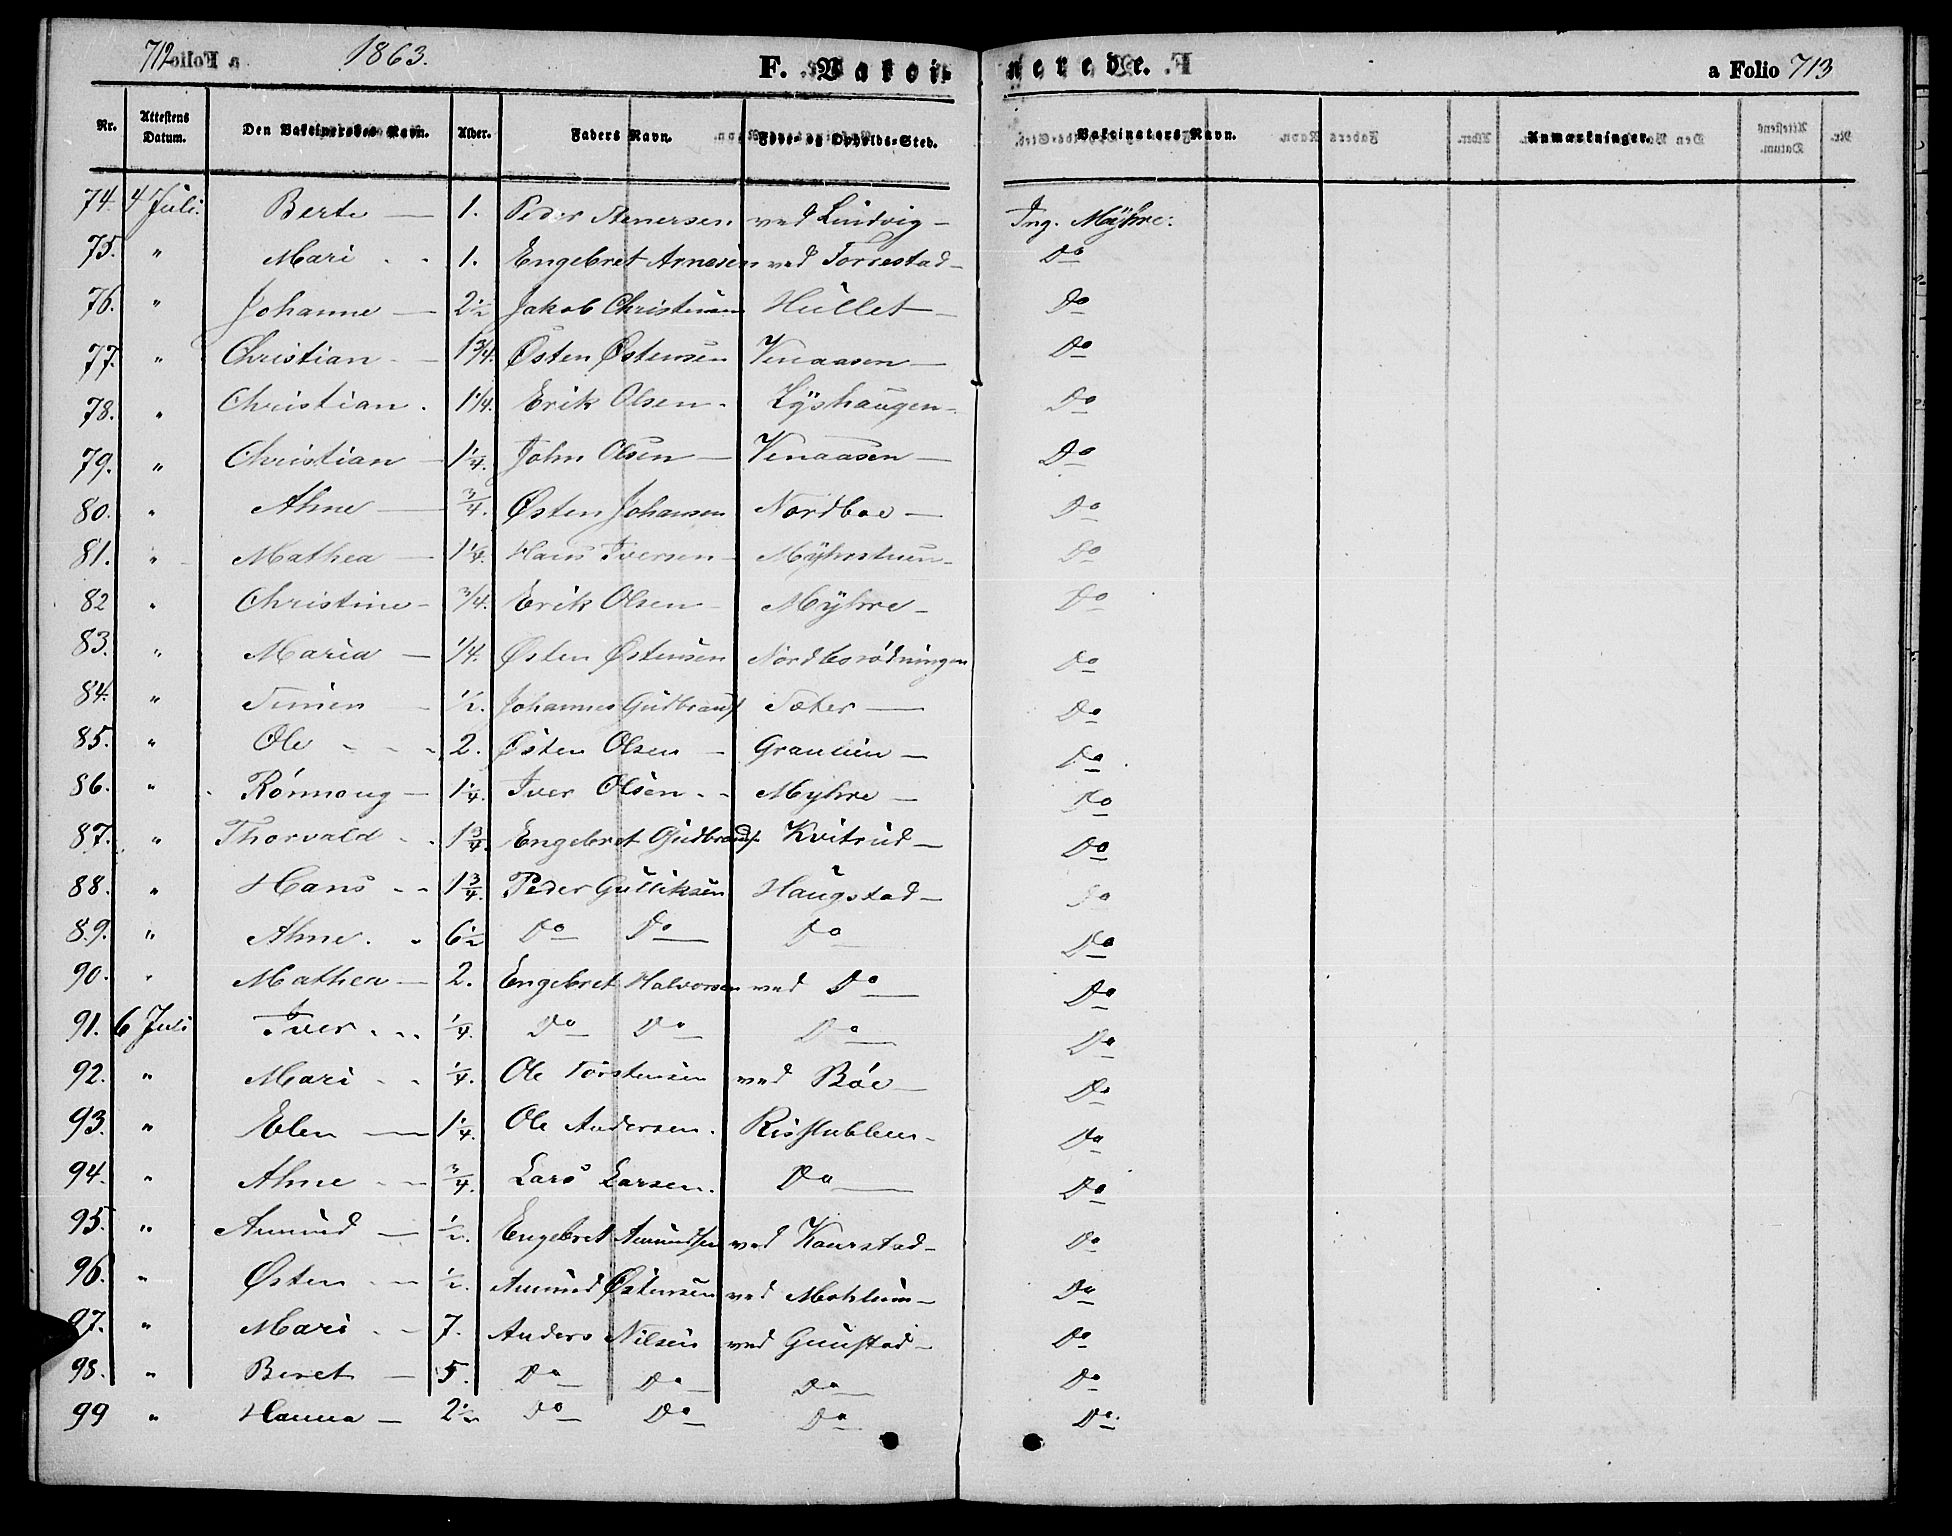 712 a Folio 1863. F. Vakcinerede. a Folio 713
Nr. Attestens Datum. Den Vakcineredes Navn. Alder. Faders Navn. Føde- og Opholds-Sted. Vakcinators Navn. Anmærkninger.
74. 4 Juli. Berte — 1. Peder Stenersen ved Lindvig — Ing. Mÿhre.
75. " Mari - - 1. Engebret Arnesen ved Torrestad — Do
76. " Johanne — 2½ Jakob Christensen Hullet — Do
77. " Christian — 1¾. Østen Østensen Venaasen — Do
78. " Christian. 1¼. Erik Olsen - Lÿshaugen - Do
79. " Christian — 1¼. John Olsen — Venaasen — Do
80. " Ahne — ¾. Østen Johansen Nordboe — Do
81. " Mathea — 1¼. Hans Iversen — Mÿhrstuen - Do
82 " Christine - ¾. Erik Olsen - Mÿhre - Do
83. " Maria — ¼. Østen Østensen Nordborødningen Do
84. " Simen — ½. Johannes Gudbrands Sæter — Do
85. " Ole - - - 2. Østen Olsen — Do
86. " Rønnoug — 1¼. Iver Olsen - - Myhre — Do
87. " Thorvald - - 1¾. Engebret Gudbrands Kvitrud — Do
88. " Hans - - 1¾. Peder Gulliksen Haugstad — Do
89. " Ahne. - 6½ Do Do Do Do
90. " Mathea — 2. Engebret Halvorsen ved Do Do
91. 6 Juli Iver - - - ¼. Do Do Do Do
92. " Mari - - ¼. Ole Torstensen ved Bøe — Do
93. " Elen — 1¼. Ole Andersen. Do
94. " Ahne - - ¾. Lars Larsen. Do Do
95. " Amund — ½. Engebret Amundsen ved Kaurstad - Do
96. " Østen - - ½. Amund Østensen ved Do
97. " Mari - - 7. Anders Nilsen ved Gunstad — Do
98. " Beret — 5. Do Do Do Do
99 " Hanna — 2½ Do Do Do Do.